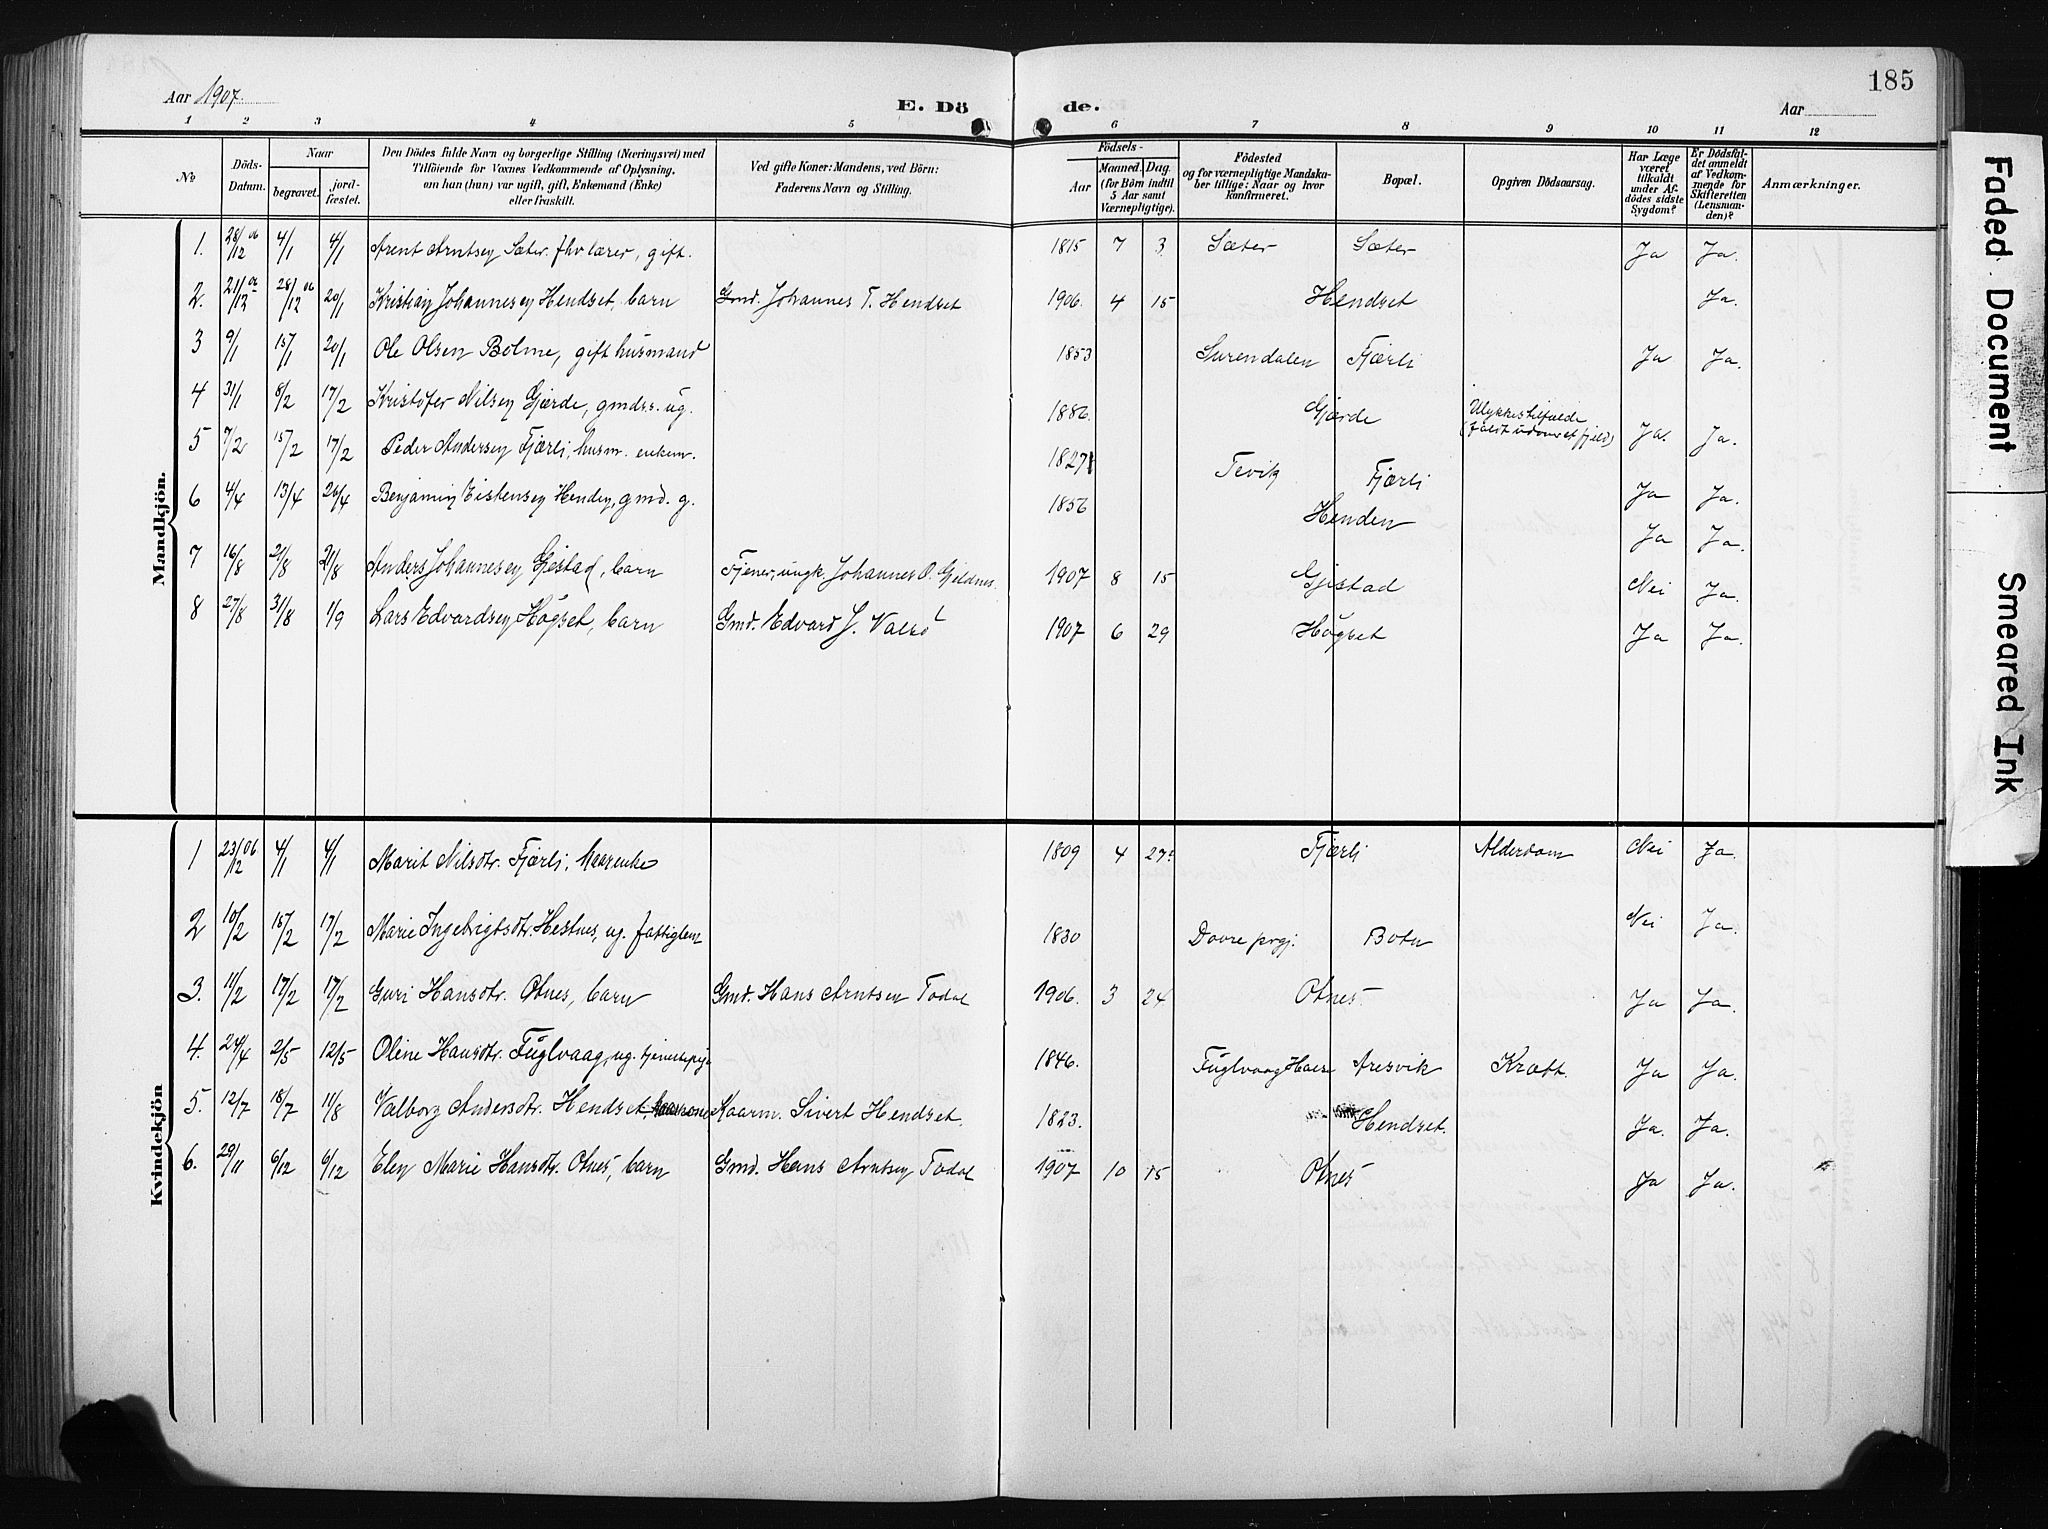 185
Aar 1907.
E. Dö de.
Aar
1 2 3 4 5 6 7 8 9 10 11 12
No
Döds-Datum.
Naar
begravet.
jord-fæstet.
Den Dödes fulde Navn og borgerlige Stilling (Næringsvei) med
Tilföiende for Voxnes Vedkommende af Oplysning,
om han (hun) var ugift, gift, Enkemand (Enke)
eller fraskilt.
Ved gifte Koner: Mandens, ved Börn:
Faderens Navn og Stilling.
Födsels-
Aar
Maaned. Dag.
(for Börn indtil
5 Aar samt
Værnepligtige).
Födested
og for værnepligtige Mandska-
ber tillige: Naar og hvor
konfirmeret.
Bopæl.
Opgiven Dödsaarsag.
Har Læge
været
tilkaldt
under Af-
dödes sidste
Sygdom?
Er Dödsfal-
det anmeldt
af Vedkom-
mende for
Skifteretten
(Lensman-
den)?
Anmærkninger.
Mandkjön.
1. 28/12 06 4/1 4/1 Arent Arntsen Sæter. fhv lærer, gift. 1815 7 3 Sæter Sæter Ja Ja.
2. 21/12 06 28/12 06 20/1 Kristian Johannesen Hendset, barn Gmd. Johannes T. Hendset 1906. 4 15 Hendset Ja.
3 9/1 15/1 20/1 Ole Olsen Bolme, gift husmand 1853 Surendalen Fjærli Ja Ja.
4 31/1 8/2 17/2 Kristofer Nilsen Gjærde, gmdss. ug. 1886. Gjærde Ulykkestilfælde (faldt udover et fjeld) Ja. Ja.
5 7/2 15/2 17/2 Peder Andersen Fjærli, husm. enkem. 1827 Tevik Fjærli Ja Ja.
6 4/4 13/4 20/4 Benjamin Eistensen Henden, gmd. g. 1856 Henden Ja Ja.
7 16/8 21/8 21/8 Anders Johannesen Gjestad, barn Tjener, ungk. Johannes O. Gjeldnes. 1907 8 15 Gjistad Nei Ja.
8 27/8 31/8 1/9 Lars Edvardsen Högset, barn Gmd. Edvard J. Valsö 1907 6 29 Högset Ja Ja.
Kvindekjön
1 23/12 06 4/1 4/1 Marit Nilsdtr. Fjærli, kaarenke 1809 4 27 Fjærli Alderdom Nei Ja.
2 10/2 15/2 17/2 Marie Ingebrigtsdtr. Hestnes, ug. fattiglem 1830 Dovre prgj. Botn Nei Ja.
3. 11/2 17/2 17/2 Guri Hansdtr. Otnes, barn Gmd. Hans Arntsen Todal 1906. 3 24 Otnes Ja Ja.
4. 24/4 2/5 12/5 Oline Hansdtr. Fuglvaag, ug. tjenestepige 1846. Fuglvaag Halse Aresvik Kræft. Ja Ja.
5. 12/7 18/7 11/8 Valborg Andersdtr. Hendset, kaarkone Kaarm. Sivert Hendset. 1823. Hendset. Ja. Ja.
6. 29/11 6/12 6/12 Elen Marie Hansdtr. Otnes, barn Gmd. Hans Arntsen Todal 1907 10 15 Otnes Ja Ja.
Faded Document
Smeared Ink